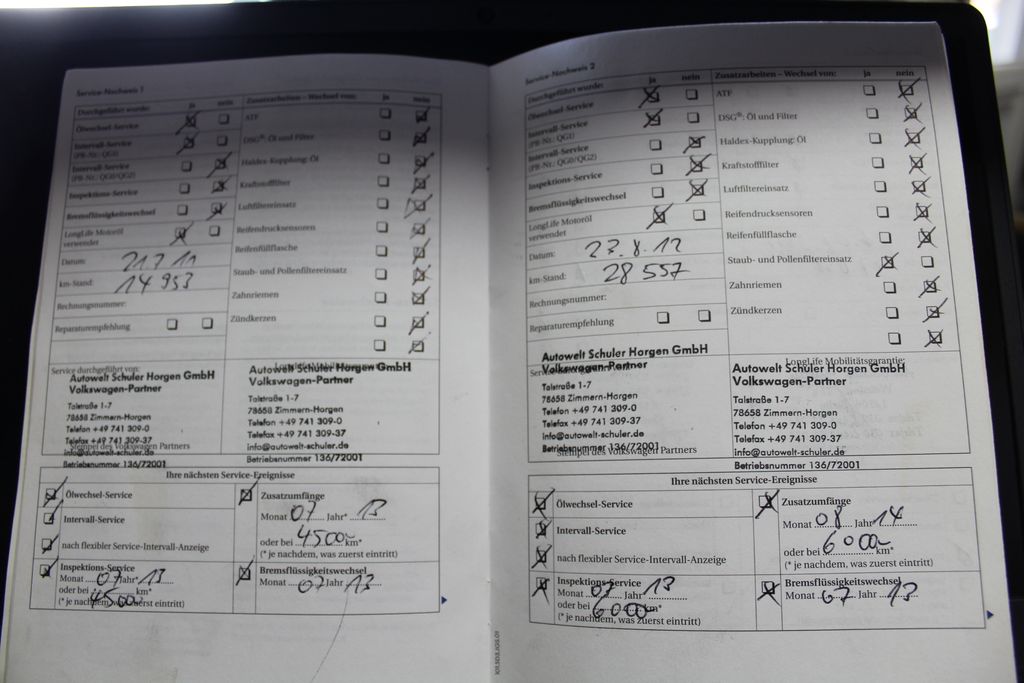 Service-Nachweis 1
Durchgeführt wurde: ja nein
Ölwechsel-Service
Intervall-Service
(PR-Nr.: QG1)
Intervall-Service
(PR-Nr.: QG0/QG2)
Inspektions-Service
Bremsflüssigkeitswechsel
LongLife Motoröl
verwendet
Datum: 21.7.11
km-Stand: 14 953
Rechnungsnummer:
Reparaturempfehlung
Zusatzarbeiten – Wechsel von: ja nein
ATF
DSG®: Öl und Filter
Haldex-Kupplung: Öl
Kraftstofffilter
Luftfiltereinsatz
Reifendrucksensoren
Reifenfüllflasche
Staub- und Pollenfiltereinsatz
Zahnriemen
Zündkerzen
Service durchgeführt von:
Autowelt Schuler Horgen GmbH
Volkswagen-Partner
Talstraße 1-7
78658 Zimmern-Horgen
Telefon +49 741 309-0
Telefax +49 741 309-37
info@autowelt-schuler.de
Stempel des Volkswagen Partners
Betriebsnummer 136/72001
Autowelt Schuler Horgen GmbH
Volkswagen-Partner
Talstraße 1-7
78658 Zimmern-Horgen
Telefon +49 741 309-0
Telefax +49 741 309-37
info@autowelt-schuler.de
Betriebsnummer 136/72001
Ihre nächsten Service-Ereignisse
Ölwechsel-Service
Intervall-Service
nach flexibler Service-Intervall-Anzeige
Inspektions-Service
Monat 07 Jahr* 13
oder bei 45000 km*
(* je nachdem, was zuerst eintritt)
Zusatzumfänge
Monat 07 Jahr* 13
oder bei 45000 km*
(* je nachdem, was zuerst eintritt)
Bremsflüssigkeitswechsel
Monat 07 Jahr 13
Service-Nachweis 2
Durchgeführt wurde: ja nein
Ölwechsel-Service
Intervall-Service
(PR-Nr.: QG1)
Intervall-Service
(PR-Nr.: QG0/QG2)
Inspektions-Service
Bremsflüssigkeitswechsel
LongLife Motoröl
verwendet
Datum: 27.8.12
km-Stand: 28 557
Rechnungsnummer:
Reparaturempfehlung
Zusatzarbeiten – Wechsel von: ja nein
ATF
DSG®: Öl und Filter
Haldex-Kupplung: Öl
Kraftstofffilter
Luftfiltereinsatz
Reifendrucksensoren
Reifenfüllflasche
Staub- und Pollenfiltereinsatz
Zahnriemen
Zündkerzen
Autowelt Schuler Horgen GmbH
Volkswagen-Partner
Talstraße 1-7
78658 Zimmern-Horgen
Telefon +49 741 309-0
Telefax +49 741 309-37
info@autowelt-schuler.de
Betriebsnummer 136/72001
Stempel des Volkswagen Partners
LongLife Mobilitätsgarantie:
Autowelt Schuler Horgen GmbH
Volkswagen-Partner
Talstraße 1-7
78658 Zimmern-Horgen
Telefon +49 741 309-0
Telefax +49 741 309-37
info@autowelt-schuler.de
Betriebsnummer 136/72001
Ihre nächsten Service-Ereignisse
Ölwechsel-Service
Intervall-Service
nach flexibler Service-Intervall-Anzeige
Inspektions-Service
Monat 07 Jahr 13
oder bei 6000 km*
(* je nachdem, was zuerst eintritt)
Zusatzumfänge
Monat 08 Jahr* 14
oder bei 6000 km*
(* je nachdem, was zuerst eintritt)
Bremsflüssigkeitswechsel
Monat 07 Jahr 13